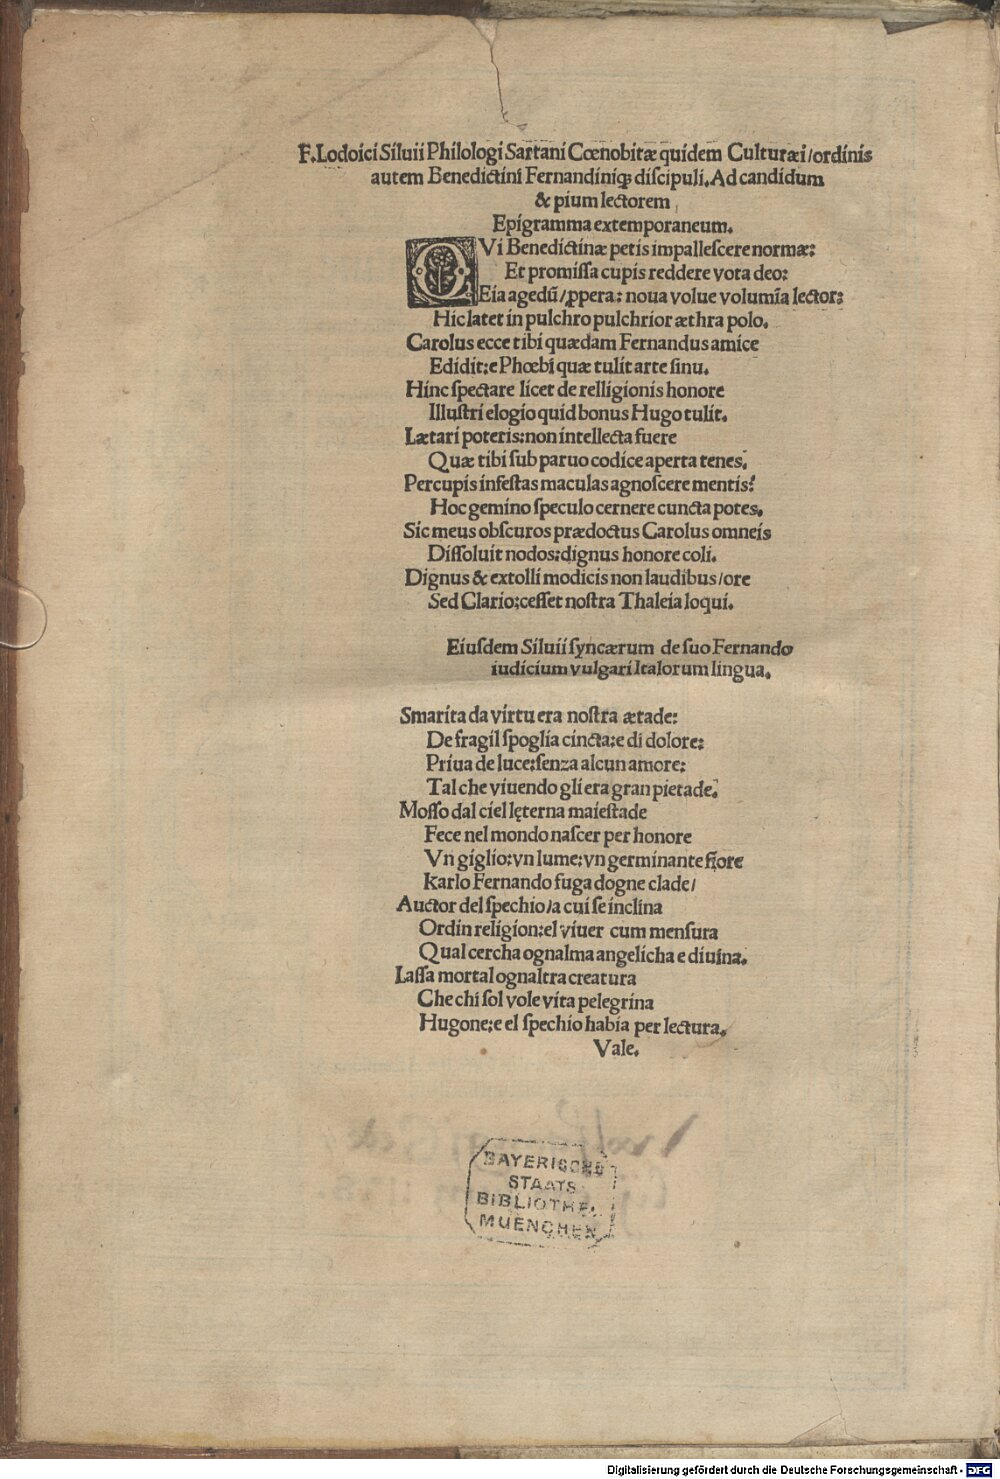 F.Lodoici Siluii Philologi Sartani Cœnobitæ quidem Culturæi/ordinis
autem Benedictini Fernandiniqꝫ discipuli.Ad candidum
& pium lectorem
Epigramma extemporaneum.
QVi Benedictinæ petis impallescere normæ:
Et promissa cupis reddere vota deo:
Eia agedū/ꝓpera: noua volue volumīa lector:
Hic latet in pulchro pulchrior æthra polo.
Carolus ecce tibi quædam Fernandus amice
Edidit:e Phœbi quæ tulit arte sinu.
Hinc spectare licet de relligionis honore
Illustri elogio quid bonus Hugo tulit.
Lætari poteris:non intellecta fuere
Quæ tibi sub paruo codice aperta tenes.
Percupis infestas maculas agnoscere mentis?
Hoc gemino speculo cernere cuncta potes.
Sic meus obscuros prædoctus Carolus omneis
Dissoluit nodos:dignus honore coli.
Dignus & extolli modicis non laudibus/ore
Sed Clario:cesset nostra Thaleia loqui.
Eiusdem Siluii syncærum de suo Fernando
iudicium vulgari Italorum lingua.
Smarita da virtu era nostra ætade:
De fragil spoglia cincta:e di dolore:
Priua de luce:senza alcun amore:
Tal che viuendo gli era gran pietade.
Mosso dal ciel lęterna maiestade
Fece nel mondo nascer per honore
Vn giglio:vn lume:vn germinante fiore
Karlo Fernando fuga dogne clade/
Auctor del spechio/a cui se inclina
Ordin religion:el viuer cum mensura
Qual cercha ognalma angelicha e diuina.
Lassa mortal ognaltra creatura
Che chi sol vole vita pelegrina
Hugone:e el spechio habia per lectura.
Vale.
BAYERISCHE
STAATS
BIBLIOTHE.
MUENCHEN
Digitalisierung gefördert durch die Deutsche Forschungsgemeinschaft - DFG